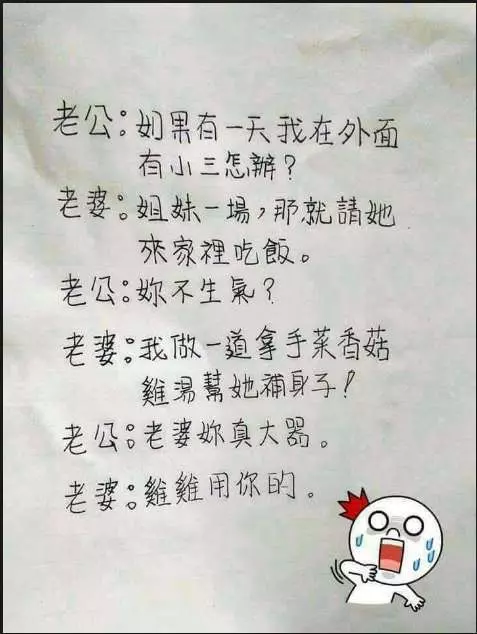 老公：如果有一天我在外面
有小三怎辦？
老婆：姐妹一場，那就請她
來家裡吃飯。
老公：妳不生氣？
老婆：我做一道拿手菜香菇
雞湯幫她補身子！
老公：老婆妳真大器。
老婆：雞雞用你的。